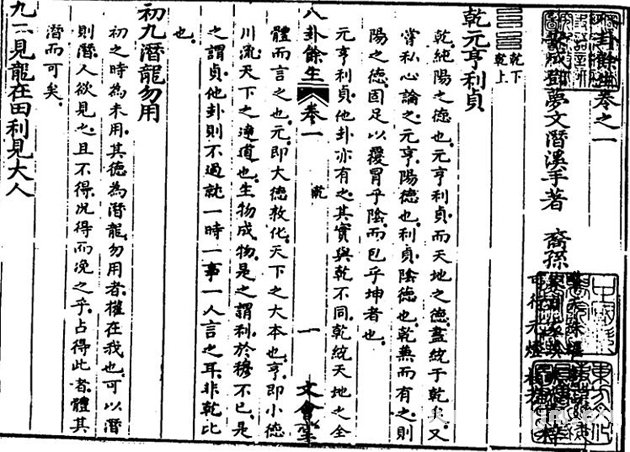 八卦餘生卷之一
安成鄧夢文潛溪手著 裔孫
乾下
乾上
乾元亨利貞
乾純陽之德也元亨利貞而天地之德盡統于乾矣又
嘗私心論之元亨陽德也利貞陰德也乾無而有之則
陽之德固足以覆冒乎陰而包乎坤者也
元亨利貞他卦亦有之其實與乾不同乾統天地之全
八卦餘生 卷一 乾 一 文會堂
體而言之也元即大德敦化天下之大本也亨即小德
川流天下之達道也生物成物是之謂利於穆不已是
之謂貞他卦則不過就一時一事一人言之耳非乾比
也
初九潛龍勿用
初之時為未用其德為潛龍勿用者權在我也可以潛
則潛人欲見之且不得況得而浼之乎占得此者體其
潛而可矣
九二見龍在田利見大人